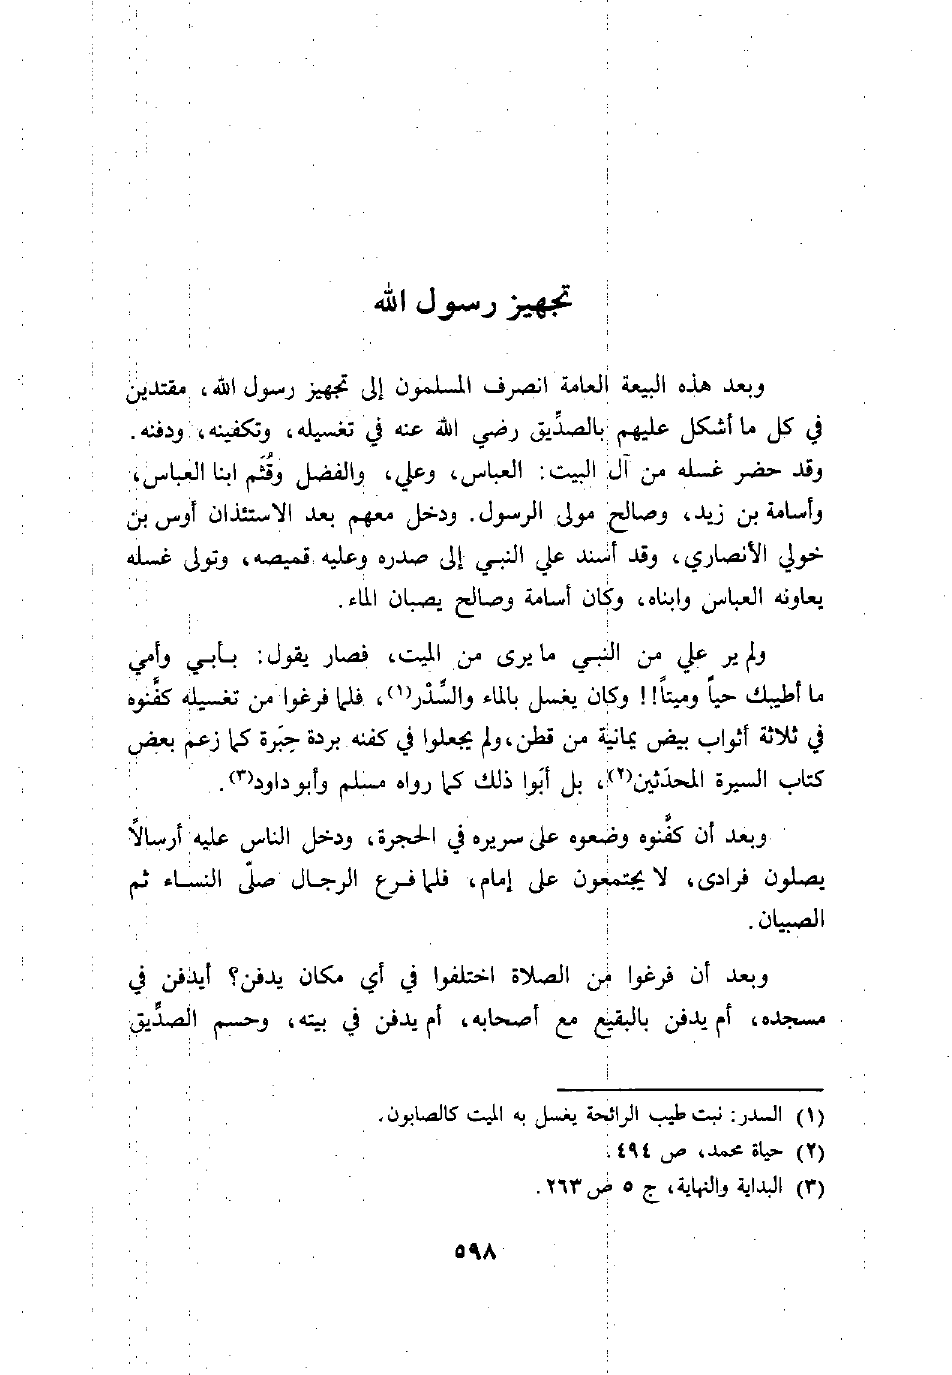 تجهيز رسول الله
وبعد هذه البيعة العامة انصرف المسلمون إلى تجهيز رسول الله، مقتدين
في كل ما أشكل عليهم بالصدِّيق رضي الله عنه في تغسيله، وتكفينه، ودفنه.
وقد حضر غسله من آل البيت: العباس، وعلي، والفضل وقُثَم ابنا العباس،
وأسامة بن زيد، وصالح مولى الرسول. ودخل معهم بعد الاستئذان أوس بن
خولي الأنصاري، وقد أسند علي النبي إلى صدره وعليه قميصه، وتولى غسله
يعاونه العباس وابناه، وكان أسامة وصالح يصبان الماء.
ولم ير علي من النبي ما يرى من الميت، فصار يقول: بأبي وأمي
ما أطيبك حياً وميتاً!! وكان يغسل بالماء والسِّدْر(١)، فلما فرغوا من تغسيله كفَّنوه
في ثلاثة أثواب بيض يمانية من قطن، ولم يجعلوا في كفنه بردة حِبَرة كما زعم بعض
كتاب السيرة المحدَثين(٢)، بل أبَوا ذلك كما رواه مسلم وأبو داود(٣).
وبعد أن كفَّنوه وضعوه على سريره في الحجرة، ودخل الناس عليه أرسالاً
يصلون فرادى، لا يجتمعون على إمام، فلما فرع الرجال صلّى النساء ثم
الصبيان.
وبعد أن فرغوا من الصلاة اختلفوا في أي مكان يدفن؟ أيدفن في
مسجده، أم يدفن بالبقيع مع أصحابه، أم يدفن في بيته، وحسم الصدِّيق
(١) السدر: نبت طيب الرائحة يغسل به الميت كالصابون.
(٢) حياة محمد، ص ٤٩٤.
(٣) البداية والنهاية، ج ٥ ص ٢٦٣.
٥٩٨